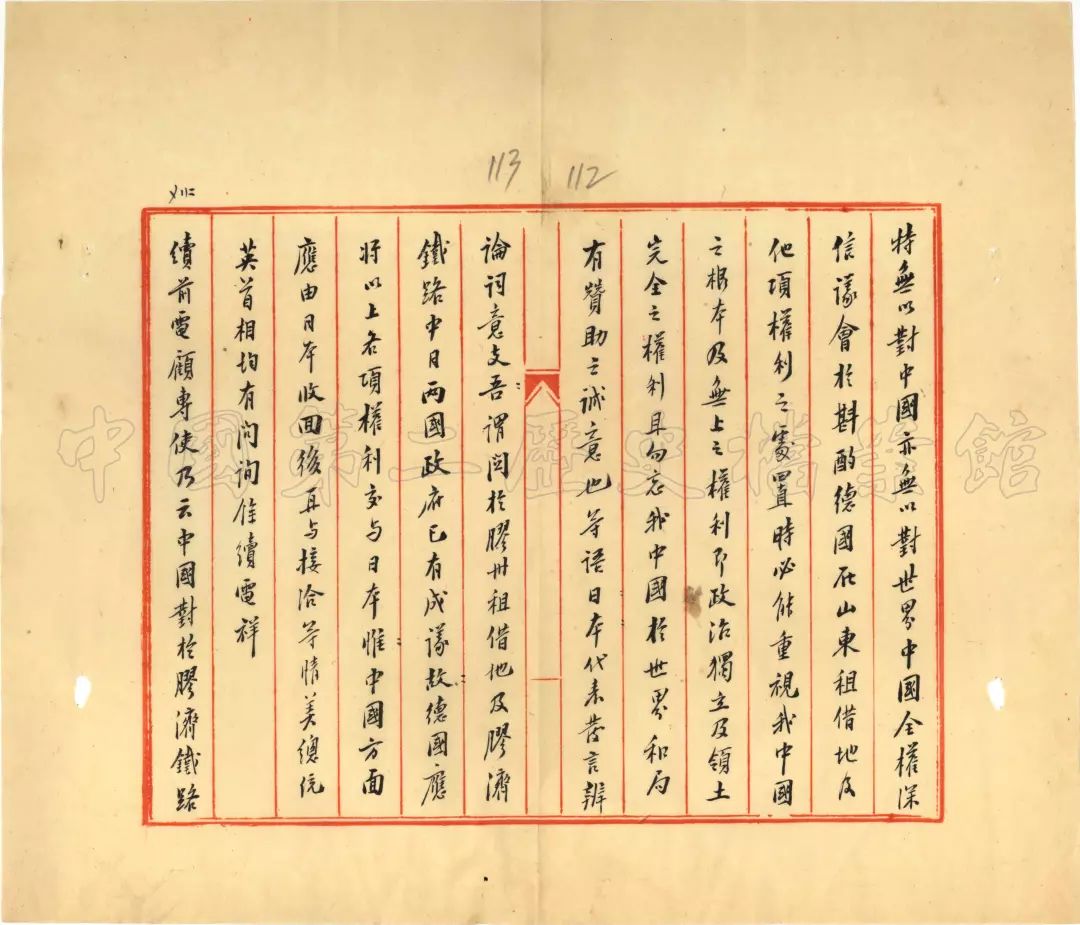 113
112
特無以對中國亦無以對世界中國全權深
信議會於斟酌德國在山東租借地及
他項權利之處置時必能重視我中國
之根本及無上之權利即政治獨立及領土
完全之權利且勿忘我中國於世界和局
有贊助之誠意也等語日本代表發言辨
論詞意支吾謂関於膠州租借地及膠濟
鐵路中日兩國政府已有成議故德國應
將以上各項權利交与日本惟中國方面
應由日本收回後再与接洽等情美總統
英首相均有問詢餘續電祥
續前電顧專使乃云中國對於膠濟鐵路
中國第二歷史檔案館